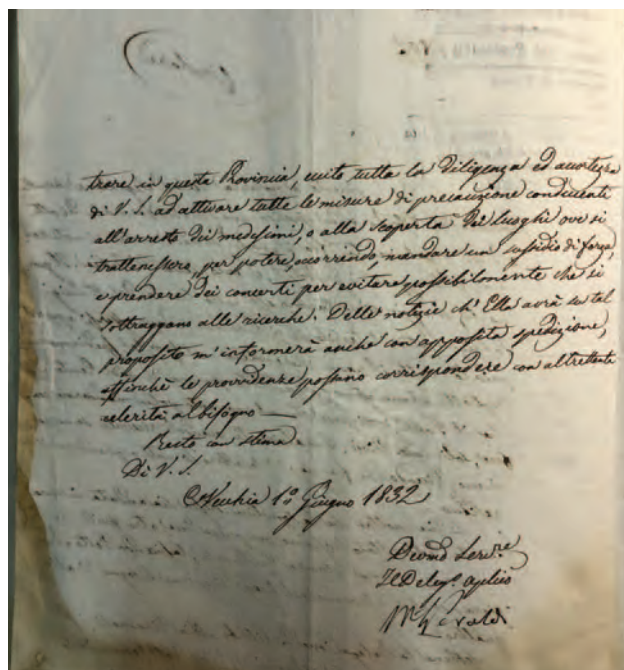 trare in questa Provincia, ecito tutta la diligenza ed accortezza
di V. S. ad attivare tutte le misure di precauzione conducenti
all'arresto dei medesimi, o alla scoperta dei luoghi ove si
trattenessero, per potere, occorrendo, mandare un sussidio di forza,
e prendere dei concerti per evitare possibilmente che si
sottraggano alle ricerche. Delle notizie ch' Ella avrà su tal
proposito m'informerà anche con apposita spedizione,
affinchè le providenze possano corrispondere con altrettanta
celerità al bisogno —
Resto con stima
Di V. S.
CVecchia 1º Giugno 1832
Devmo Servre
Il Delegº aplico